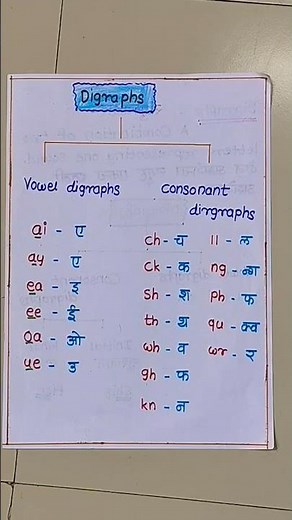 Digraphs
Vowel digraphs
ai - ए
ay - ए
ea - इ
ee - ई
oa - ओ
ue - उ
consonant
dirgraphs
ch - च
ck - क
sh - श
th - थ
wh - व
gh - फ
kn - न
ll - ल
ng - न्ग
ph - फ
qu - क्व
wr - र